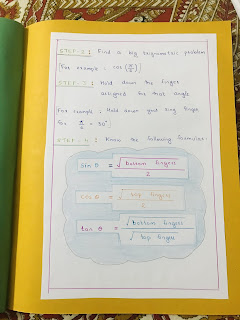 STEP - 2 : Find a trigonometric problem
[For example : cos (π/6)]
STEP - 3 : Hold down the finger
assigned for that angle
[For example , Hold down your ring finger
for π/6 = 30°]
STEP - 4 : Know the following formulas:
sin θ = √bottom fingers / 2
cos θ = √top fingers / 2
tan θ = √bottom fingers / √top fingers